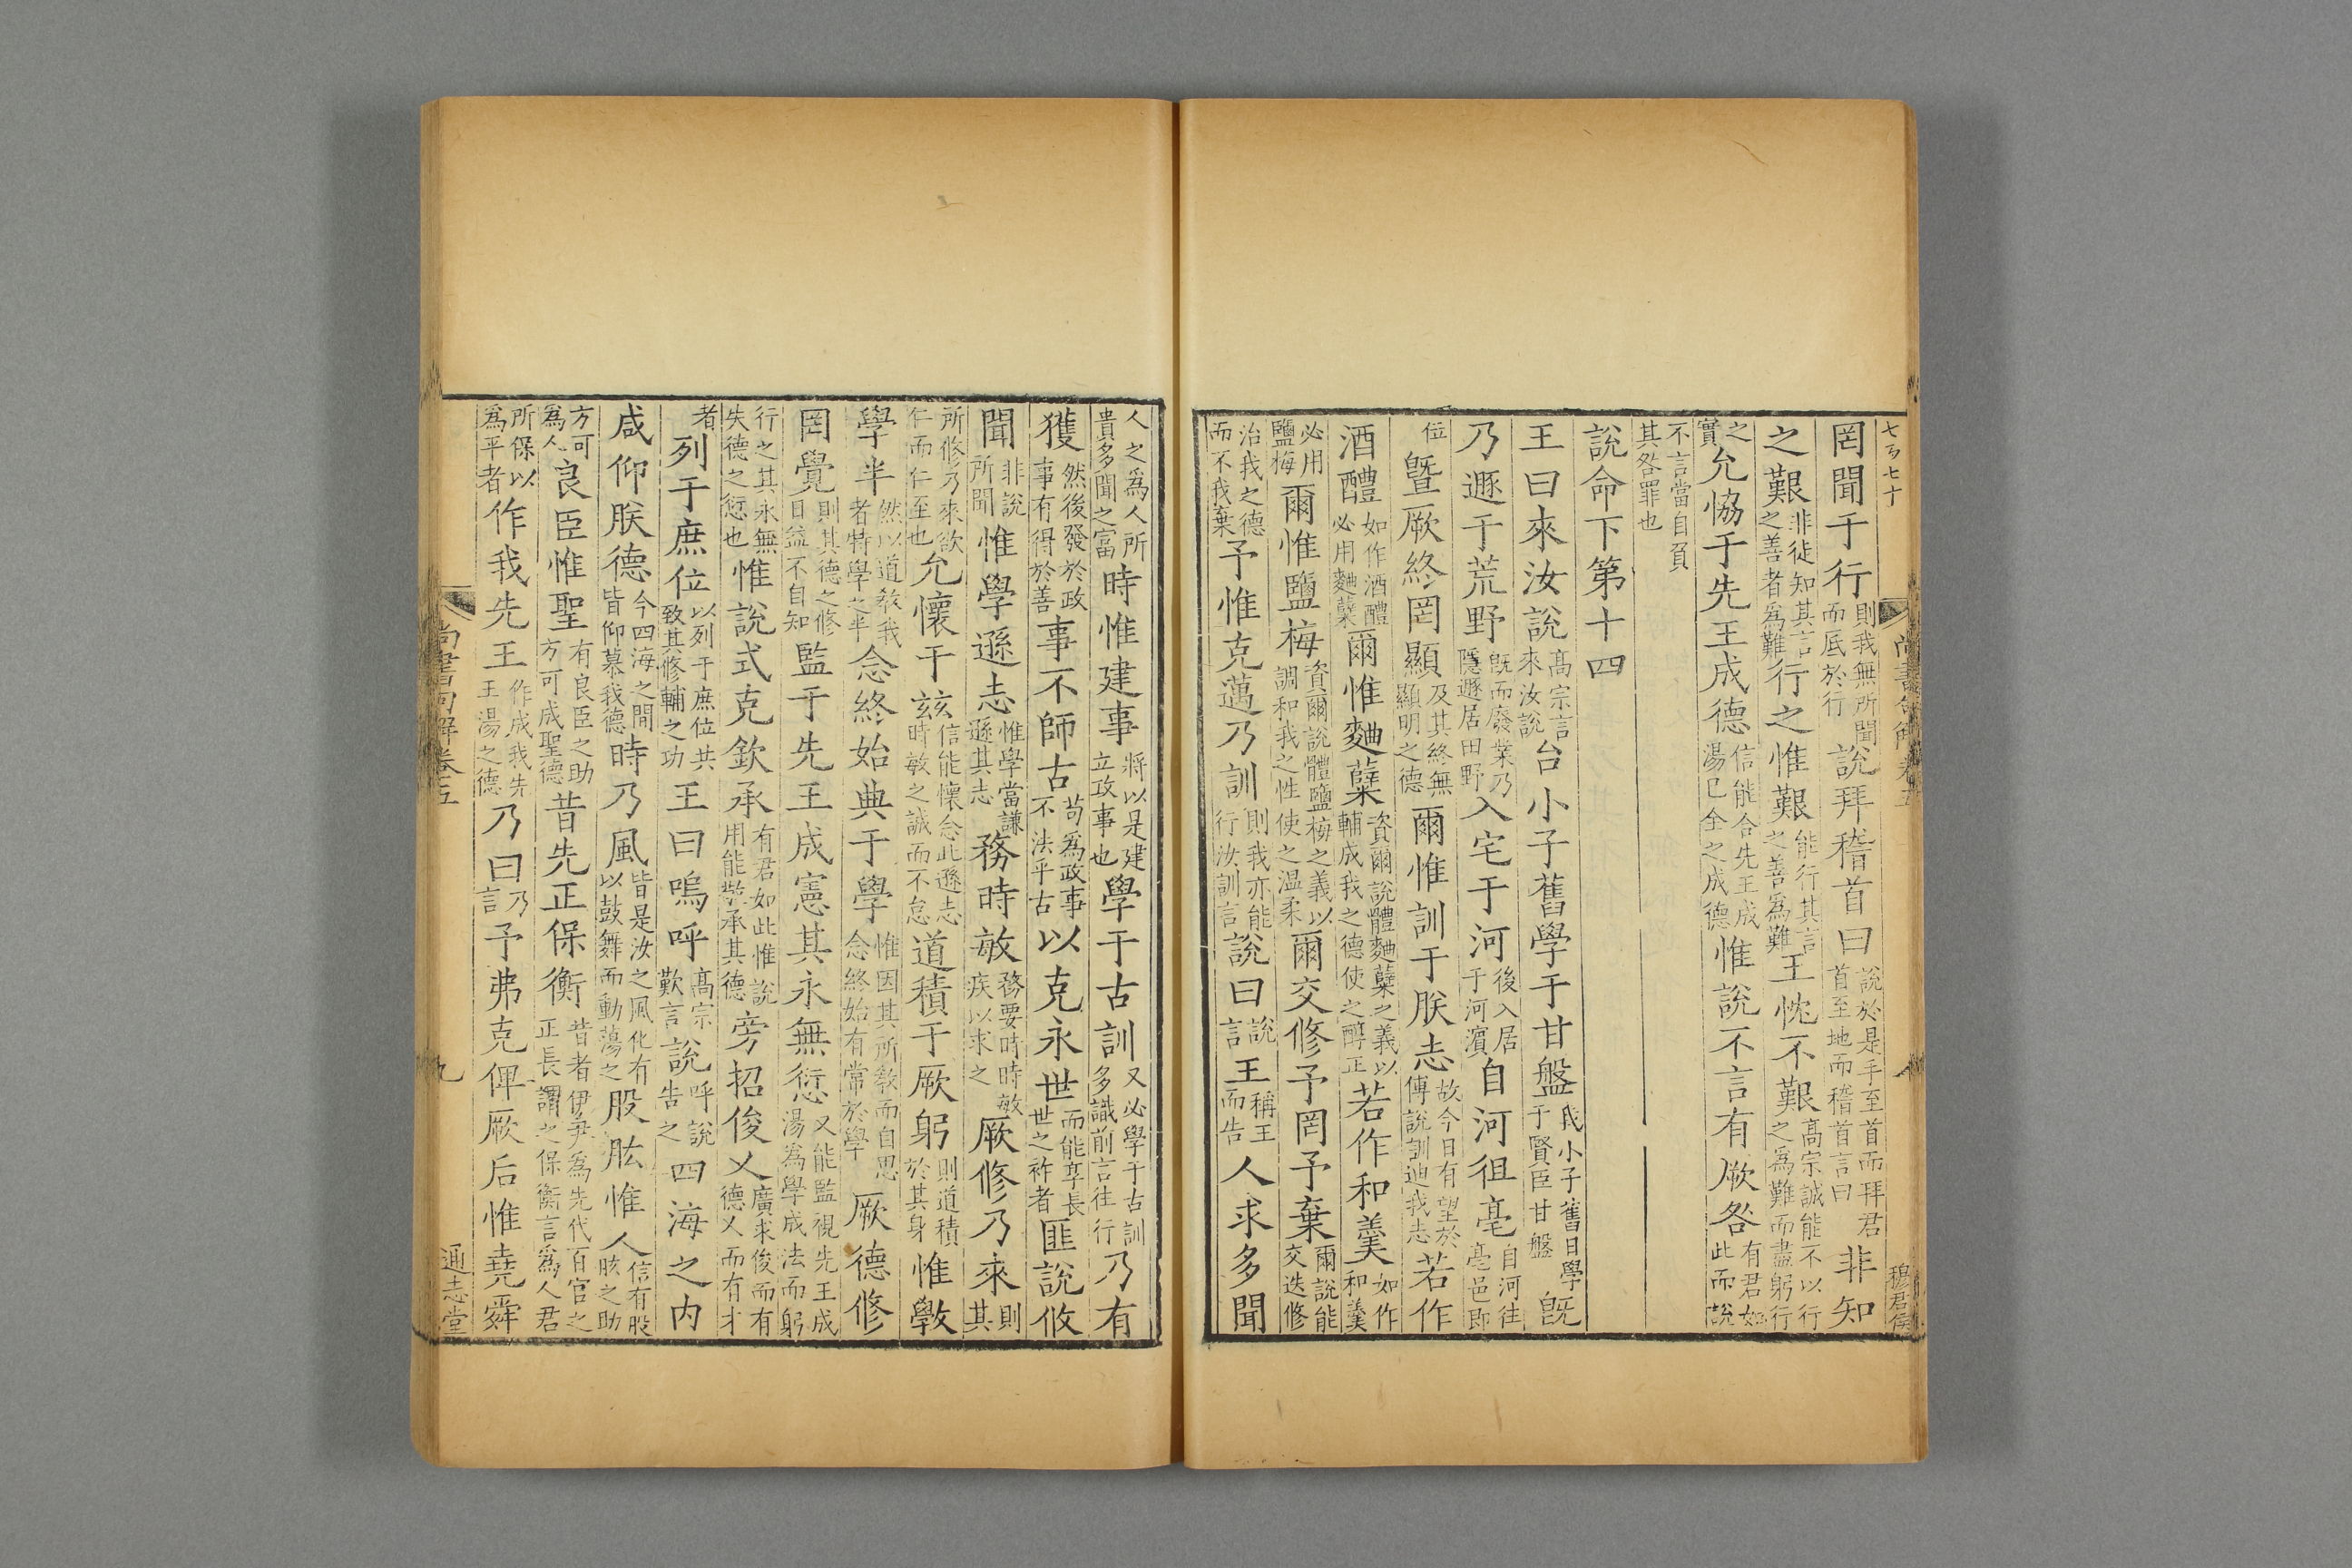 罔聞于行則我無所聞而厎於行說拜稽首曰說於是手至首而拜君首至地而稽首言曰非知
之艱非徒知其言之善者爲難行之惟艱能行其言之善爲難王忱不艱高宗誠能不以行之爲難而盡躬行
之實允協于先王成德信能合先王成湯已全之成德惟說不言有厥咎有君如此而說
不言當自負其咎罪也
說命下第十四
王曰來汝說高宗言來汝說台小子舊學于甘盤我小子舊日學于賢臣甘盤旣
乃遯于荒野旣而廢業乃隱遯居田野入宅于河後入居于河濵自河徂亳自河往亳邑即
位曁厥終罔顯及其終無顯明之德爾惟訓于朕志故今日有望於傅說訓迪我志若作
酒醴如作酒醴必用麯櫱爾惟麯糵資爾說體麯糵之義以輔成我之德使之醇正若作和羹如作和羹
必用鹽梅爾惟鹽梅資爾說體鹽梅之義以調和我之性使之温柔爾交修予罔予棄爾說能交迭修
治我之德而不我棄予惟克邁乃訓則我亦能行汝訓言說曰說言王稱王而告人求多聞
人之爲人所貴多聞之富時惟建事將以是建立政事也學于古訓又必學于古訓多識前言往行乃有
獲然後發於政事有得於善事不師古苟爲政事不法乎古以克永世而能享長世之祚者匪說攸
聞非說所聞惟學遜志惟學當謙遜其志務時敏務要時時敏疾以求之厥修乃來則其
所修乃來欲仁而仁至也允懷于玆信能懷念此遜志時敏之誠而不怠道積于厥躬則道積於其身惟斆
學半然以道敎我者特學之半念終始典于學惟因其所敎而自思念終始有常於學厥德修
罔覺則其德之修日益不自知監于先王成憲其永無愆又能監視先王成湯爲學成法而躬
行之其永無失德之愆也惟說式克欽承有君如此惟說用能敬承其德旁招俊乂廣求俊而有德乂而有才
者列于庶位以列于庶位共致其修輔之功王曰嗚呼高宗歎言說呼說告之四海之内
咸仰朕德今四海之間皆仰慕我德時乃風皆是汝之風化有以鼓舞而動蕩之股肱惟人信有股肱之助
方可爲人良臣惟聖有良臣之助方可成聖德昔先正保衡昔者伊尹爲先代百官之正長謂之保衡言爲人君
所保以爲平者作我先王作成我先王湯之德乃曰乃言予弗克俾厥后惟堯舜
尚書句解卷五
九
通志堂